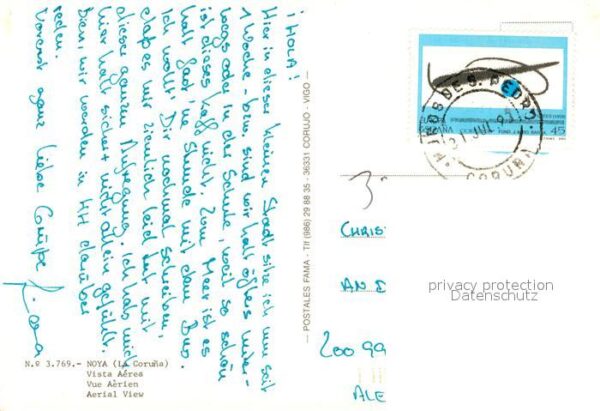 ¡HOLA!
Hier in dieser kleinen Stadt sitze ich nun seit
1 Woche - bzw. sind wir halt öfters unter-
wegs oder in der Schule, weil so schön
ist dieses Kaff nicht. Zum Meer ist es
halt fast 'ne Stunde mit dem Bus.
Ich wollt' Dir nochmal schreiben,
daß es mir ziemlich leid tut mit
dieser ganzen Aufregung. Ich hab mich
hier halt sichert nicht allein gefühlt.
Bien, wir werden in HH darüber
reden.
Vorerst ganz liebe Grüße
N.º 3.769.- NOYA (La Coruña)
Vista Aérea
Vue Aèrien
Aerial View
— POSTALES FAMA - Tlf (986) 29 88 35 - 36331 CORUJO - VIGO —
ESPAÑA
45
31 JUL
CORUÑA
CHRIS
AN D
200 99
ALE
privacy protection
Datenschutz